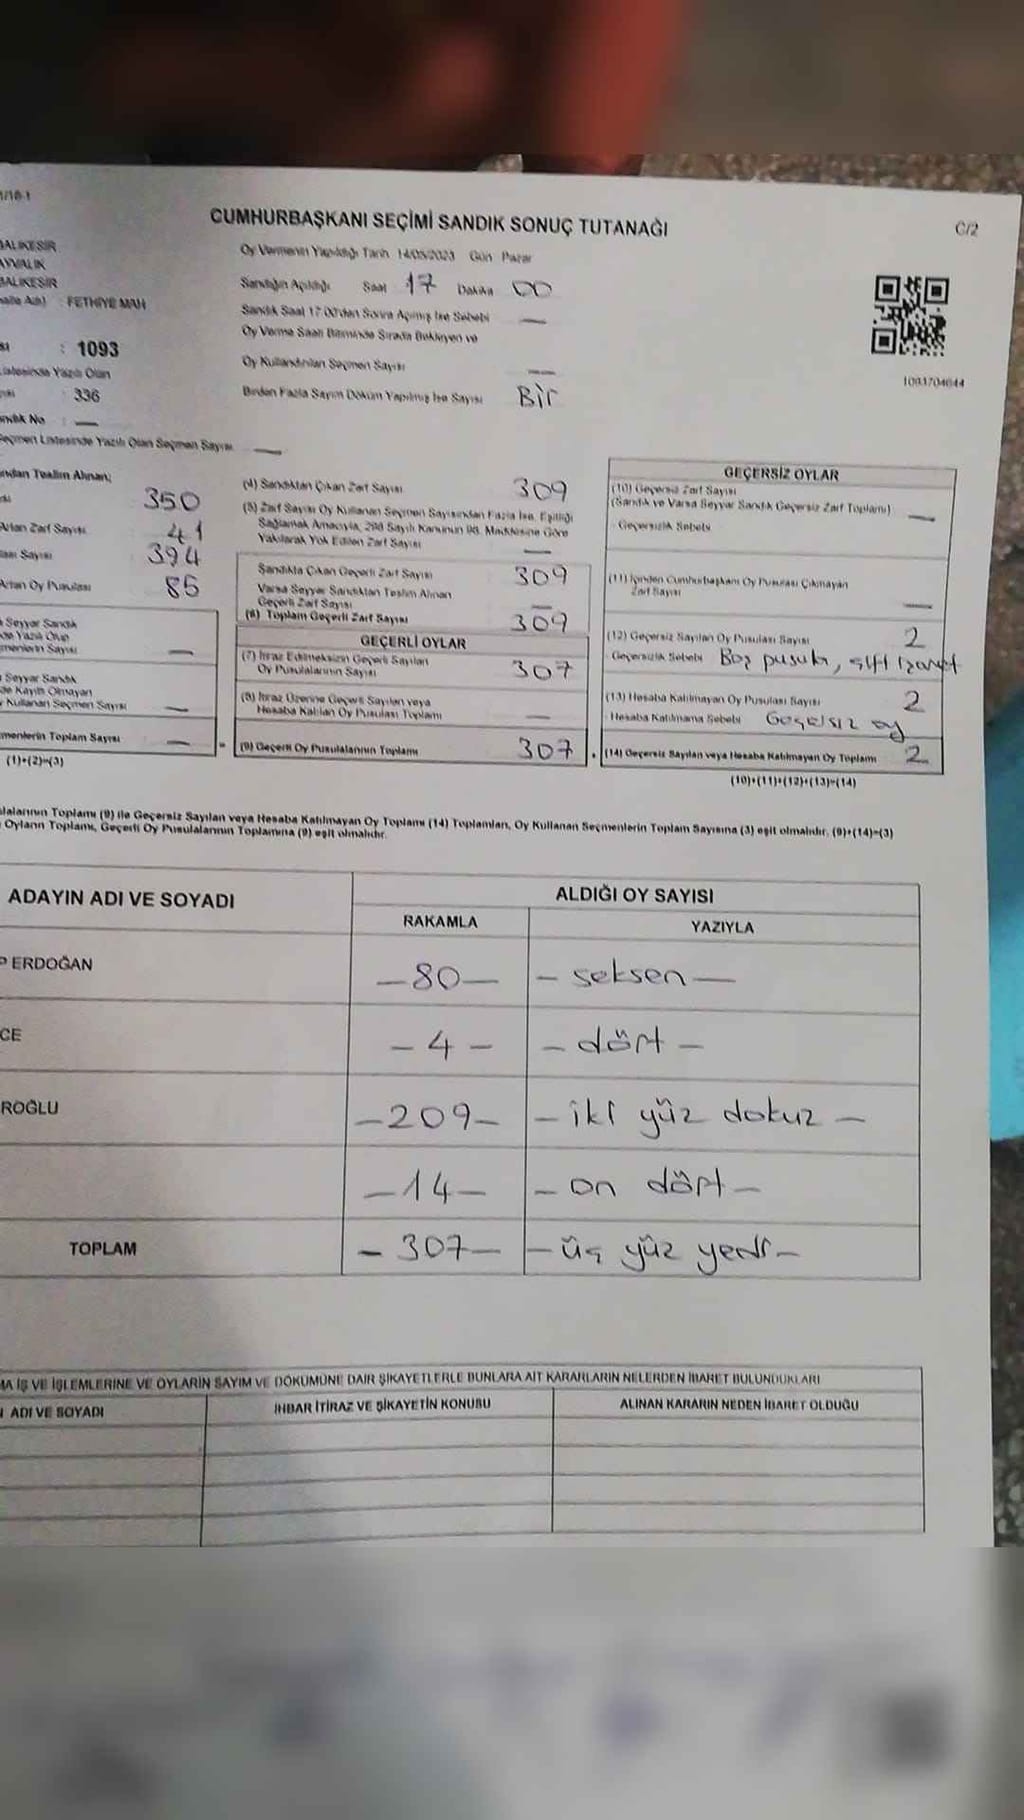 CUMHURBAŞKANI SEÇİMİ SANDIK SONUÇ TUTANAĞI
C/2
BALIKESİR
AYVALIK
BALIKESİR
FETHİYE MAH
: 1093
Listesinde Yazılı Olan
: 336
Sandık No : —
Seçmen Listesinde Yazılı Olan Seçmen Sayısı —
Oy Vermenin Yapıldığı Tarih 14/05/2023 Gün Pazar
Sandığın Açıldığı Saat 17 Dakika 00
Sandık Saat 17:00'den Sonra Açılmış İse Sebebi —
Oy Verme Saati Bitiminde Sırada Bekleyen ve
Oy Kullandırılan Seçmen Sayısı —
Birden Fazla Sayım Döküm Yapılmış İse Sayısı Bir
1093704644
Teslim Alınan;
350
Artan Zarf Sayısı 41
Sayısı 394
Artan Oy Pusulası 85
Seyyar Sandık
Yazılı Olup
Sayısı —
Seyyar Sandık
Kayıtlı Olmayan
Kullanan Seçmen Sayısı —
Toplam Sayısı —
(1)+(2)=(3)
(4) Sandıktan Çıkan Zarf Sayısı 309
(5) Zarf Sayısı Oy Kullanan Seçmen Sayısından Fazla İse, Eşitliği
Sağlamak Amacıyla, 298 Sayılı Kanunun 98. Maddesine Göre
Yakılarak Yok Edilen Zarf Sayısı —
Sandıkta Çıkan Geçerli Zarf Sayısı 309
Varsa Seyyar Sandıktan Teslim Alınan
Geçerli Zarf Sayısı —
(6) Toplam Geçerli Zarf Sayısı 309
GEÇERLİ OYLAR
(7) İtiraz Edilmeksizin Geçerli Sayılan
Oy Pusulalarının Sayısı 307
(8) İtiraz Üzerine Geçerli Sayılan veya
Hesaba Katılan Oy Pusulası Toplamı —
(9) Geçerli Oy Pusulalarının Toplamı 307
GEÇERSİZ OYLAR
(10) Geçersiz Zarf Sayısı
(Sandık ve Varsa Seyyar Sandık Geçersiz Zarf Toplamı) —
Geçersizlik Sebebi
(11) İçinden Cumhurbaşkanı Oy Pusulası Çıkmayan
Zarf Sayısı —
(12) Geçersiz Sayılan Oy Pusulası Sayısı 2
Geçersizlik Sebebi
(13) Hesaba Katılmayan Oy Pusulası Sayısı 2
Hesaba Katılmama Sebebi oy
(14) Geçersiz Sayılan veya Hesaba Katılmayan Oy Toplamı 2
(10)+(11)+(12)+(13)=(14)
Toplamı (9) ile Geçersiz Sayılan veya Hesaba Katılmayan Oy Toplamı (14) Toplamları, Oy Kullanan Seçmenlerin Toplam Sayısına (3) eşit olmalıdır. (9)+(14)=(3)
Oyların Toplamı, Geçerli Oy Pusulalarının Toplamına (9) eşit olmalıdır.
ADAYIN ADI VE SOYADI
ALDIĞI OY SAYISI
RAKAMLA
YAZIYLA
P ERDOĞAN —80— — seksen —
CE — 4 — — dört —
ROĞLU —209— — iki yüz dokuz —
—14— — on dört —
TOPLAM — 307— — üç yüz yedi —
MA İŞ VE İŞLEMLERİNE VE OYLARIN SAYIM VE DÖKÜMÜNE DAİR ŞİKAYETLERLE BUNLARA AİT KARARLARIN NELERDEN İBARET BULUNDUKLARI
ADI VE SOYADI
İHBAR İTİRAZ VE ŞİKAYETİN KONUSU
ALINAN KARARIN NEDEN İBARET OLDUĞU